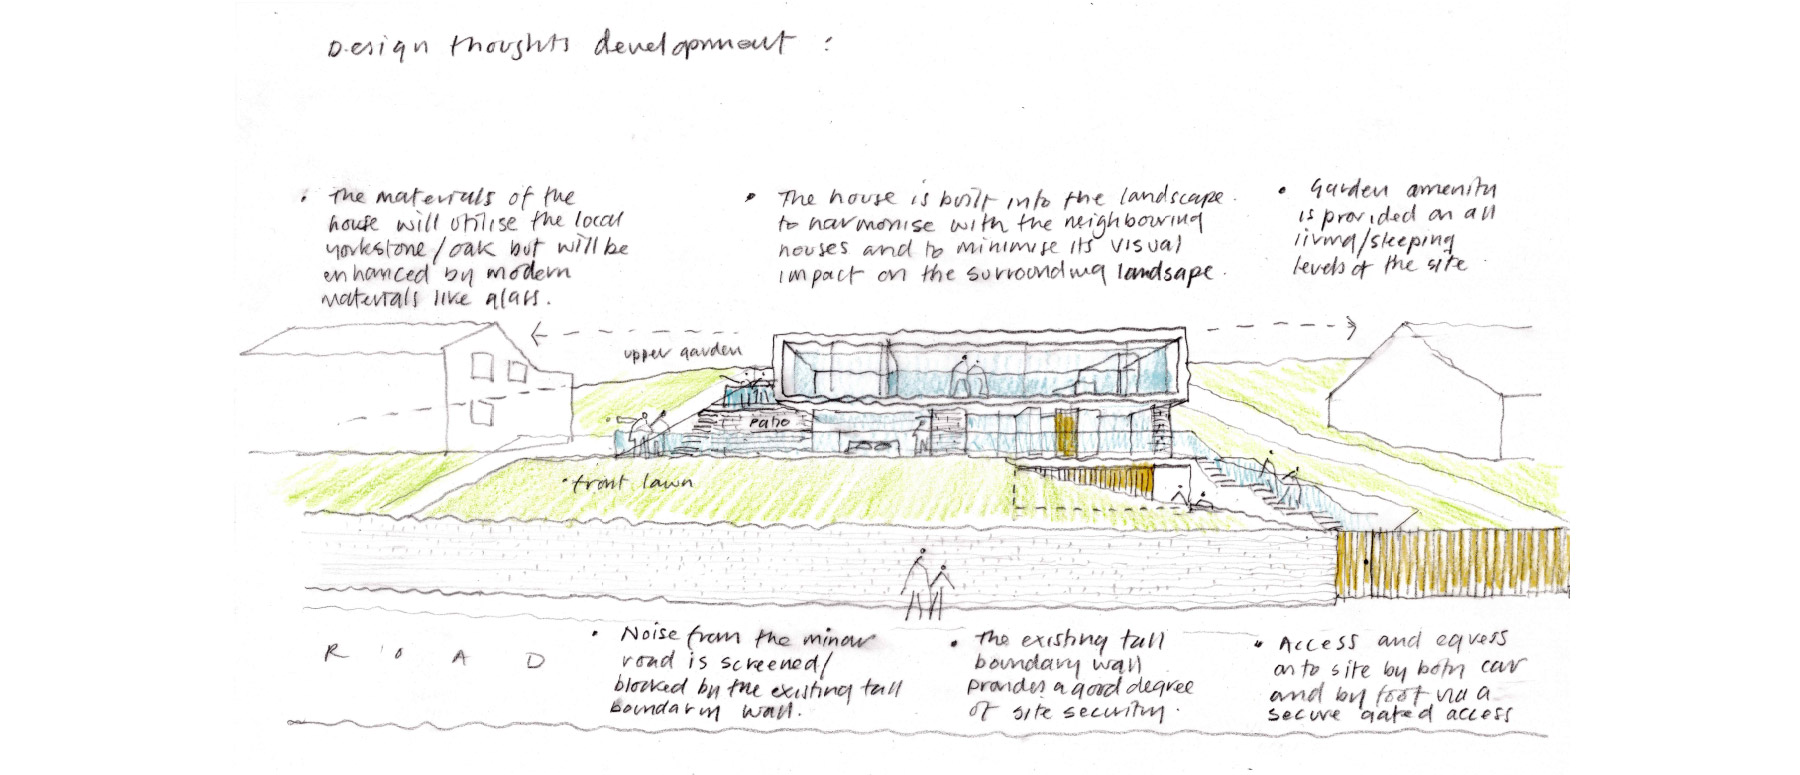 Design thoughts development :
• The materials of the
house will utilise the local
yorkstone/oak but will be
enhanced by modern
materials like glass.
• The house is built into the landscape.
to harmonise with the neighbouring
houses and to minimise its visual
impact on the surrounding landsape.
• Garden amenity
is provided on all
living/sleeping
levels of the site.
upper garden
patio
• front lawn
ROAD
• Noise from the minor
road is screened/
blocked by the existing tall
boundary wall.
• The existing tall
boundary wall
provides a good degree
of site security.
• Access and egress
onto site by both car
and by foot via a
secure gated access